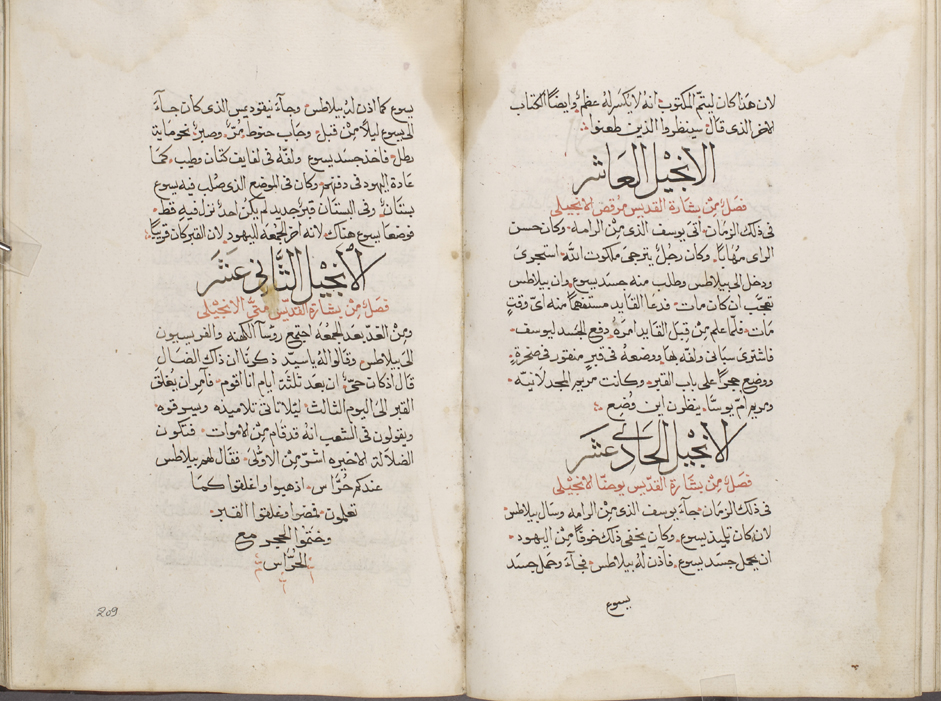 لان هذا كان ليتم المكتوب انه لا يكسر له عظم وايضًا الكتاب
الاخر الذي قال سينظروا الذين طعنوا
الانجيل العاشر
فصل من بشارة القديس مرقص الانجيلي
في ذلك الزمان اتى يوسف الذي من الرامه وكان حسن
الراي مهابًا وكان رجل يترجى ملكوت الله استجرى
ودخل الى بيلاطس وطلب منه جسد يسوع وان بيلاطس
تعجب ان كان مات فدعا القايد مستفهمًا منه اى وقت
مات فلما علم من قبل القايد امره دفع الجسد ليوسف
فاشترى سبانى ولفه بها ووضعه في قبر منقور في صخرة
ووضع حجرًا على باب القبر وكانت مريم المجدلانيه
ومريم ام يوسا ينظرون اين وضع
الانجيل الحادي عشر
فصل من بشارة القديس يوحنا الانجيلي
في ذلك الزمان جآء يوسف الذي من الرامه وسال بيلاطس
لان كان تلميذ يسوع وكان يخفي ذلك خوفًا من اليهود
ان يحمل جسد يسوع فآذن له بيلاطس فجآء وحمل جسد
يسوع
يسوع كما اذن له بيلاطس وجآء نيقوديمس الذي كان جآء
الى يسوع ليلًا من قبل وجاب حنوط مر وصبر نحو ماية
رطل فاخذ جسد يسوع ولفه في لفايف كتان وطيب كما
عادة اليهود في دفنهم وكان في الموضع الذي صلب فيه يسوع
بستان وفي البستان قبر جديد لم يكن احد نزل فيه قط
فوضعا يسوع هناك لانه اخر الجمعه اليهود لان القبر كان قريبًا
الانجيل الثاني عشر
فصل من بشارة القديس متى الانجيلي
ومن الغد بعد الجمعه اجتمع روسآ الكهنه والفريسيون
الى بيلاطس وقالوا له يا سيد ذكرنا ان ذاك الضال
قال اذ كان حي ان بعد ثلثة ايام انا اقوم فآمر ان يغلق
القبر الى اليوم الثالث ليلا تاتى تلاميذه ويسرقوه
ويقولون في الشعب انه قد قام من الاموات فتكون
الضلالة الاخيره اشر من الاولى فقال لهم بيلاطس
عندكم حراس اذهبوا واغلقوا كما
تعلمون فمضوا وغلقوا القبر
وختموا الحجر مع
الحراس
209